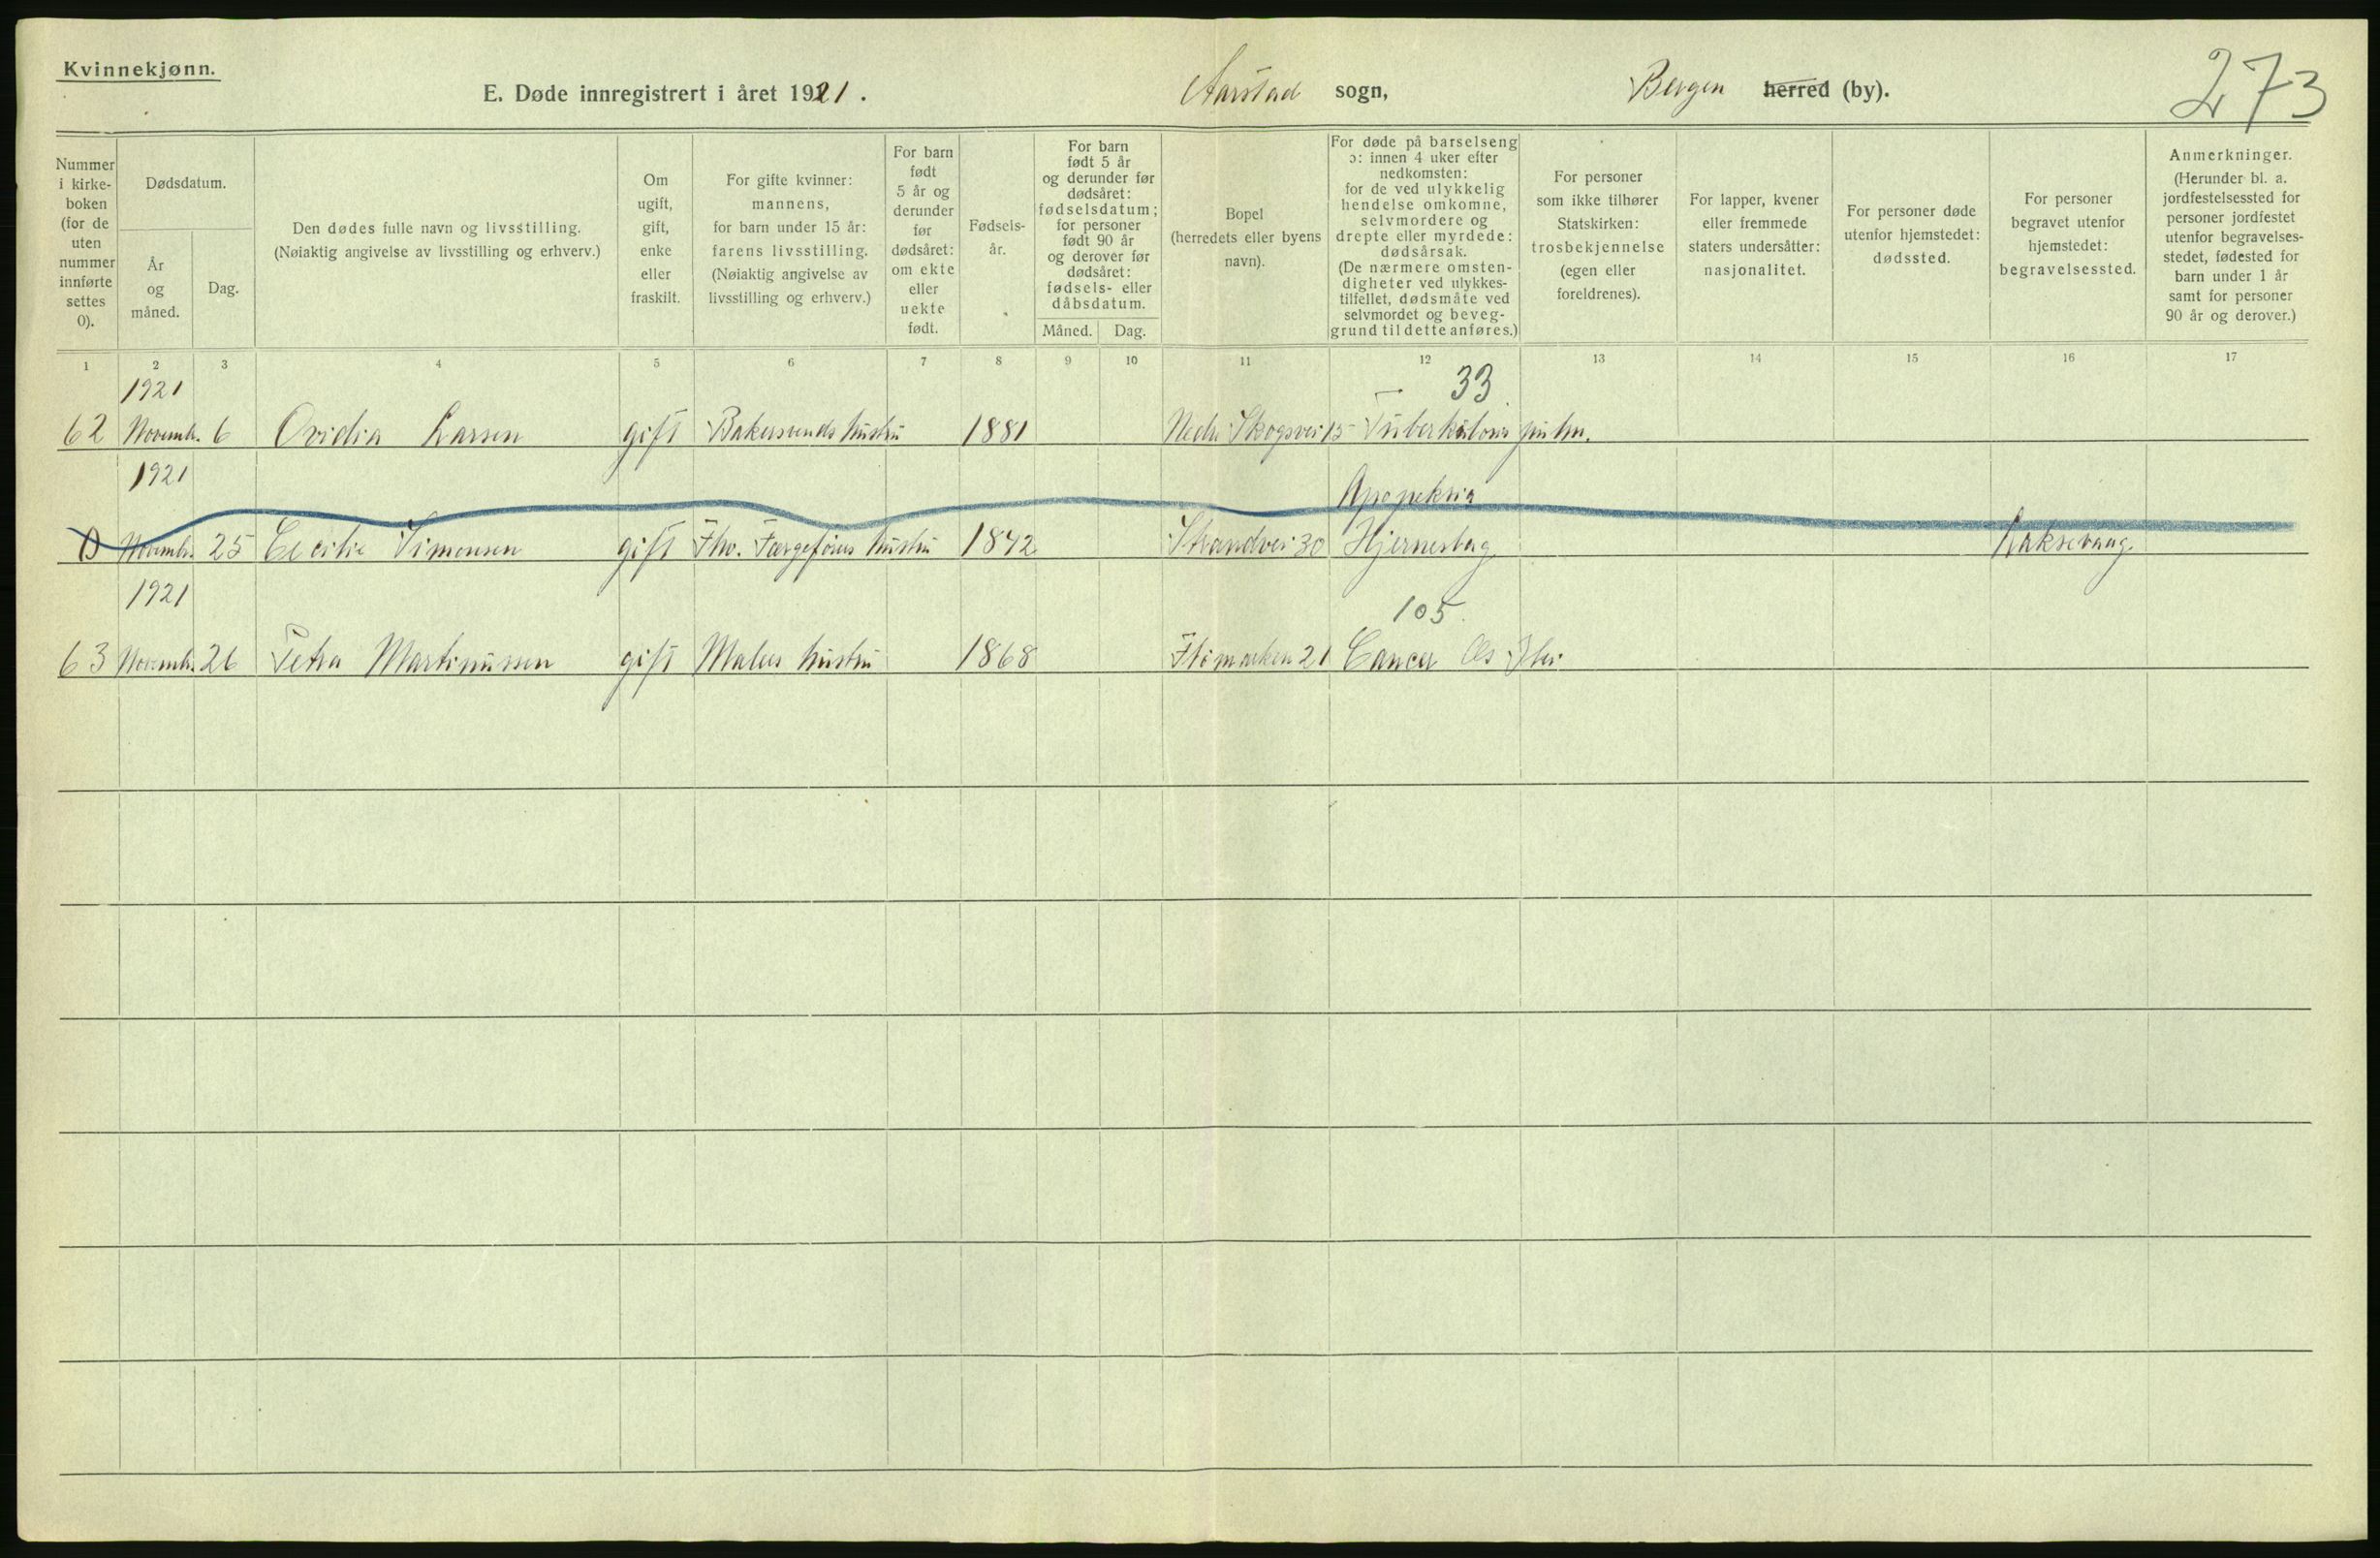 Kvinnekjønn.
E. Døde innregistrert i året 1921. Aarstad sogn, Bergen herred (by). 273
Nummer i kirke- boken (for de uten nummer innførte settes 0).
Dødsdatum.
År og måned.
Dag.
Den dødes fulle navn og livsstilling.
(Nøiaktig angivelse av livsstilling og erhverv.)
Om ugift, gift, enke eller fraskilt.
For gifte kvinner: mannens, for barn under 15 år: farens livsstilling. (Nøiaktig angivelse av livsstilling og erhverv.)
For barn født 5 år og derunder før dødsåret: om ekte eller uekte født.
Fødsels- år.
For barn født 5 år og derunder før dødsåret: fødselsdatum; for personer født 90 år og derover før dødsåret: fødsels- eller dåbsdatum.
Måned. Dag.
Bopel (herredets eller byens navn).
For døde på barselseng ɔ: innen 4 uker efter nedkomsten: for de ved ulykkelig hendelse omkomne, selvmordere og drepte eller myrdede: dødsårsak. (De nærmere omsten- digheter ved ulykkes- tilfellet, dødsmåte ved selvmordet og beveg- grund til dette anføres.)
For personer som ikke tilhører Statskirken: trosbekjennelse (egen eller foreldrenes).
For lapper, kvener eller fremmede staters undersåtter: nasjonalitet.
For personer døde utenfor hjemstedet: dødssted.
For personer begravet utenfor hjemstedet: begravelsessted.
Anmerkninger. (Herunder bl. a. jordfestelsessted for personer jordfestet utenfor begravelses- stedet, fødested for barn under 1 år samt for personer 90 år og derover.)
1 2 3 4 5 6 7 8 9 10 11 12 13 14 15 16 17
1921 33
62 Novemb. 6 Ovidia Larsen gift Bakersvends hustru 1881 Nedre Skogsvei 15 Tuberkulosis pulm.
1921 Apopleksia
0 Novemb. 25 Cecilie Simonsen gift Fhv. Færgeførers hustru 1842 Strandvei 30 Hjerneslag Laksevaag
1921 105
63 Novemb. 26 Petra Martinussen gift Malers hustru 1868 21 Cancer